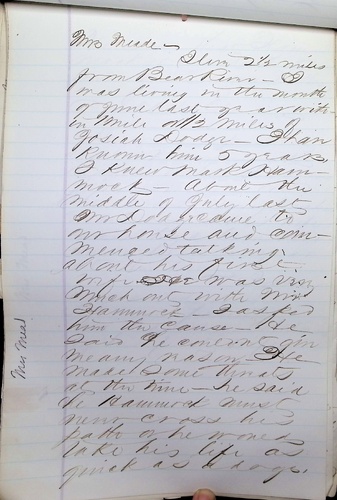 Mrs Meade –
I live 2½ miles
from Bear River – I
was living in the month
of June last year with-
in 1 mile or 1½ miles of
Josiah Dodge – I have
known him 5 years,
I knew Mark Ham-
mock – About the
middle of July last
Mr Dodge came to
our house and com-
menced talking
about his first
wife was very
much out with Mr
Hammock – I asked
him the cause – He
said he could not give
me any reason – He
made some threats
at the time – he said
he Hammock must
never cross his
path or he would
take his life as
quick as a dogs,
Mrs Mead